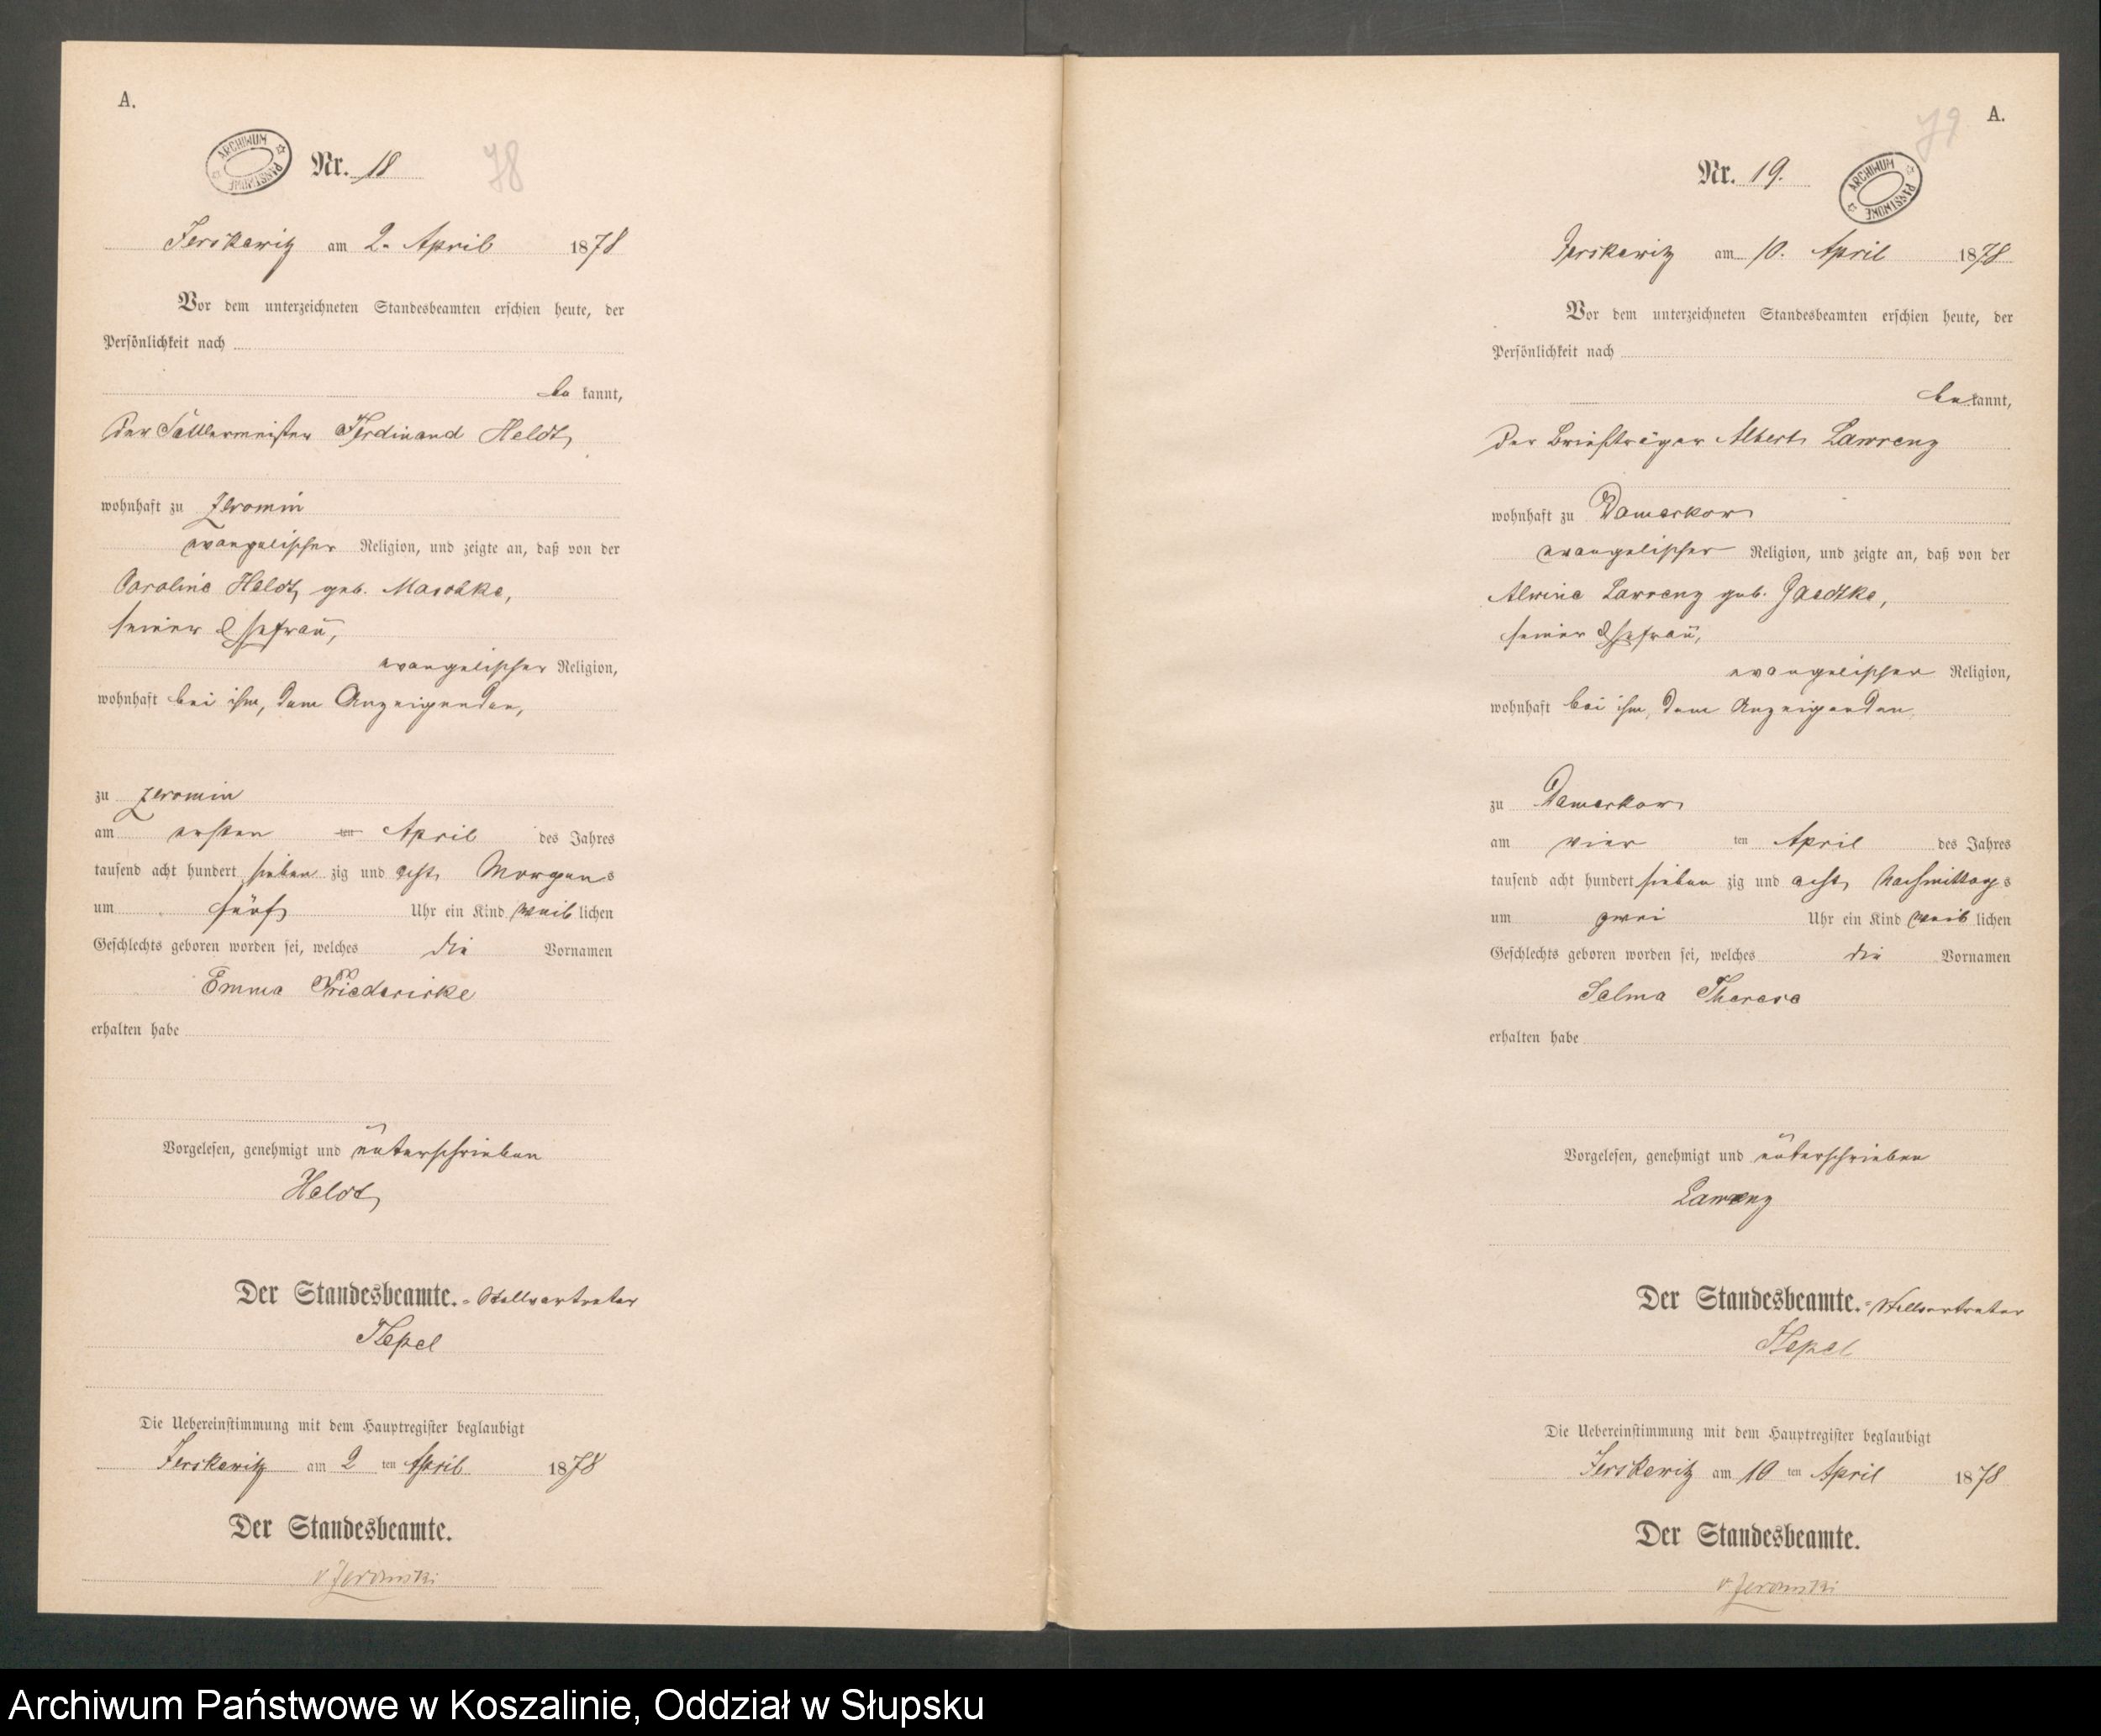 A.
ARCHIWUM PAŃSTWOWE
Nr. 18
78
Jerskewitz am 2. April 1878
Vor dem unterzeichneten Standesbeamten erschien heute, der
Persönlichkeit nach
be kannt,
der Sattlermeister Ferdinand Heldt,
wohnhaft zu Zeromin
evangelischer Religion, und zeigte an, daß von der
Caroline Heldt, geb.
seiner Ehefrau,
evangelischer Religion,
wohnhaft bei ihm, dem Anzeigenden,
zu Zeromin
am ersten ten April des Jahres
tausend acht hundert sieben zig und acht Morgens
um fünf Uhr ein Kind weib lichen
Geschlechts geboren worden sei, welches die Vornamen
Emma Friedericke
erhalten habe
Vorgelesen, genehmigt und unterschrieben
Heldt
Der Standesbeamte. - Stellvertreter
Hepel
Die Uebereinstimmung mit dem Hauptregister beglaubigt
Jerskewitz am 2 ten April 1878
Der Standesbeamte.
v Zeromski
A.
79
Nr. 19.
ARCHIWUM PAŃSTWOWE
Jerskewitz am 10. April 1878
Vor dem unterzeichneten Standesbeamten erschien heute, der
Persönlichkeit nach
be kannt,
der Briefträger Albert Lawrenz
wohnhaft zu Damerkow
evangelischer Religion, und zeigte an, daß von der
Alwine Lawrenz geb. Jaedtke,
seiner Ehefrau,
evangelischer Religion,
wohnhaft bei ihm, dem Anzeigenden
zu Damerkow
am vier ten April des Jahres
tausend acht hundert sieben zig und acht, Nachmittags
um zwei Uhr ein Kind weib lichen
Geschlechts geboren worden sei, welches die Vornamen
Selma Therese
erhalten habe
Vorgelesen, genehmigt und unterschrieben
Lawrenz
Der Standesbeamte. - Stellvertreter
Hepel
Die Uebereinstimmung mit dem Hauptregister beglaubigt
Jerskewitz am 10 ten April 1878
Der Standesbeamte.
v. Zeromski
Archiwum Państwowe w Koszalinie, Oddział w Słupsku